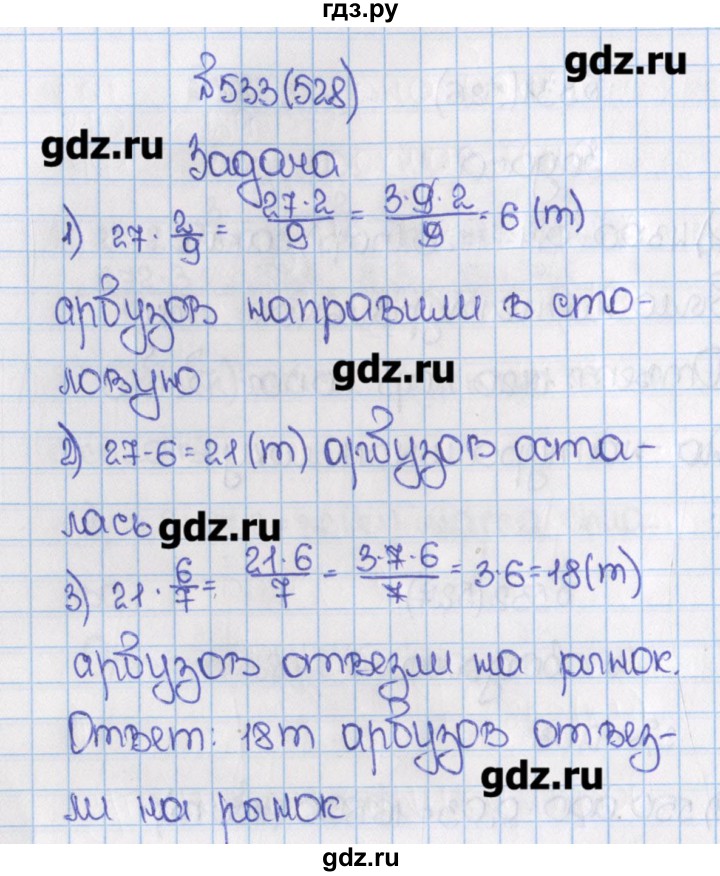 гдз.ру
№533(528)
gdz.ru
gdz.ru
Задача
1) 27 · 2/9 = 27·2/9 = 3·9·2/9 = 6 (т)
арбузов направили в сто-
ловую
gdz.ru
2) 27-6=21(т) арбузов оста-
лась
gdz.ru
3) 21 · 6/7 = 21·6/7 = 3·7·6/7 = 3·6=18(т)
арбузов отвезли на рынок.
Ответ: 18т арбузов отвез-
ли на рынок
gdz.ru
gdz.ru